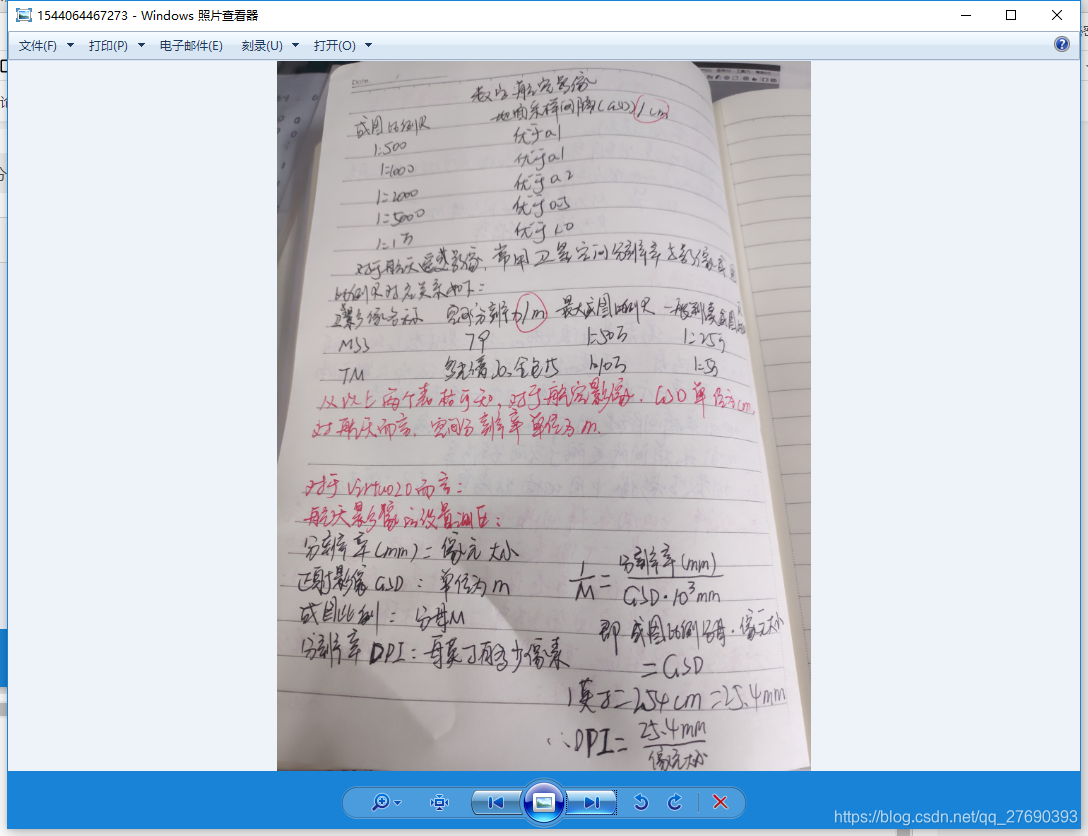 1544064467273 - Windows 照片查看器
文件(F) 打印(P) 电子邮件(E) 刻录(U) 打开(O)
数字航空影像
成图比例尺 地面采样间隔(GSD)/cm
1:500 优于0.1
1:1000 优于0.1
1:2000 优于0.2
1:5000 优于0.5
1:1万 优于1.0
对于航天遥感影像,常用卫星空间分辨率与
比例尺对应关系如下:
卫星影像名称 空间分辨率/m 最大成图比例尺
MSS 79 1:50万 1:25万
TM 多光谱 30,全色15 1:10万 1:5万
从以上两个表格可知,对于航空影像,GSD单位为cm,
对航天而言,空间分辨率单位为m.
对于Virtuozo而言:
航天影像的设置测区:
分辨率(mm)=像元大小
正射影像GSD:单位为m
成图比例:分母M
分辨率DPI:每英寸有多少像素
1/M=分辨率(mm)/GSD·10³mm
即 成图比例分母·像元大小
=GSD
1英寸=2.54cm=25.4mm
∴DPI=25.4mm/像元大小
https://blog.csdn.net/qq_27690393